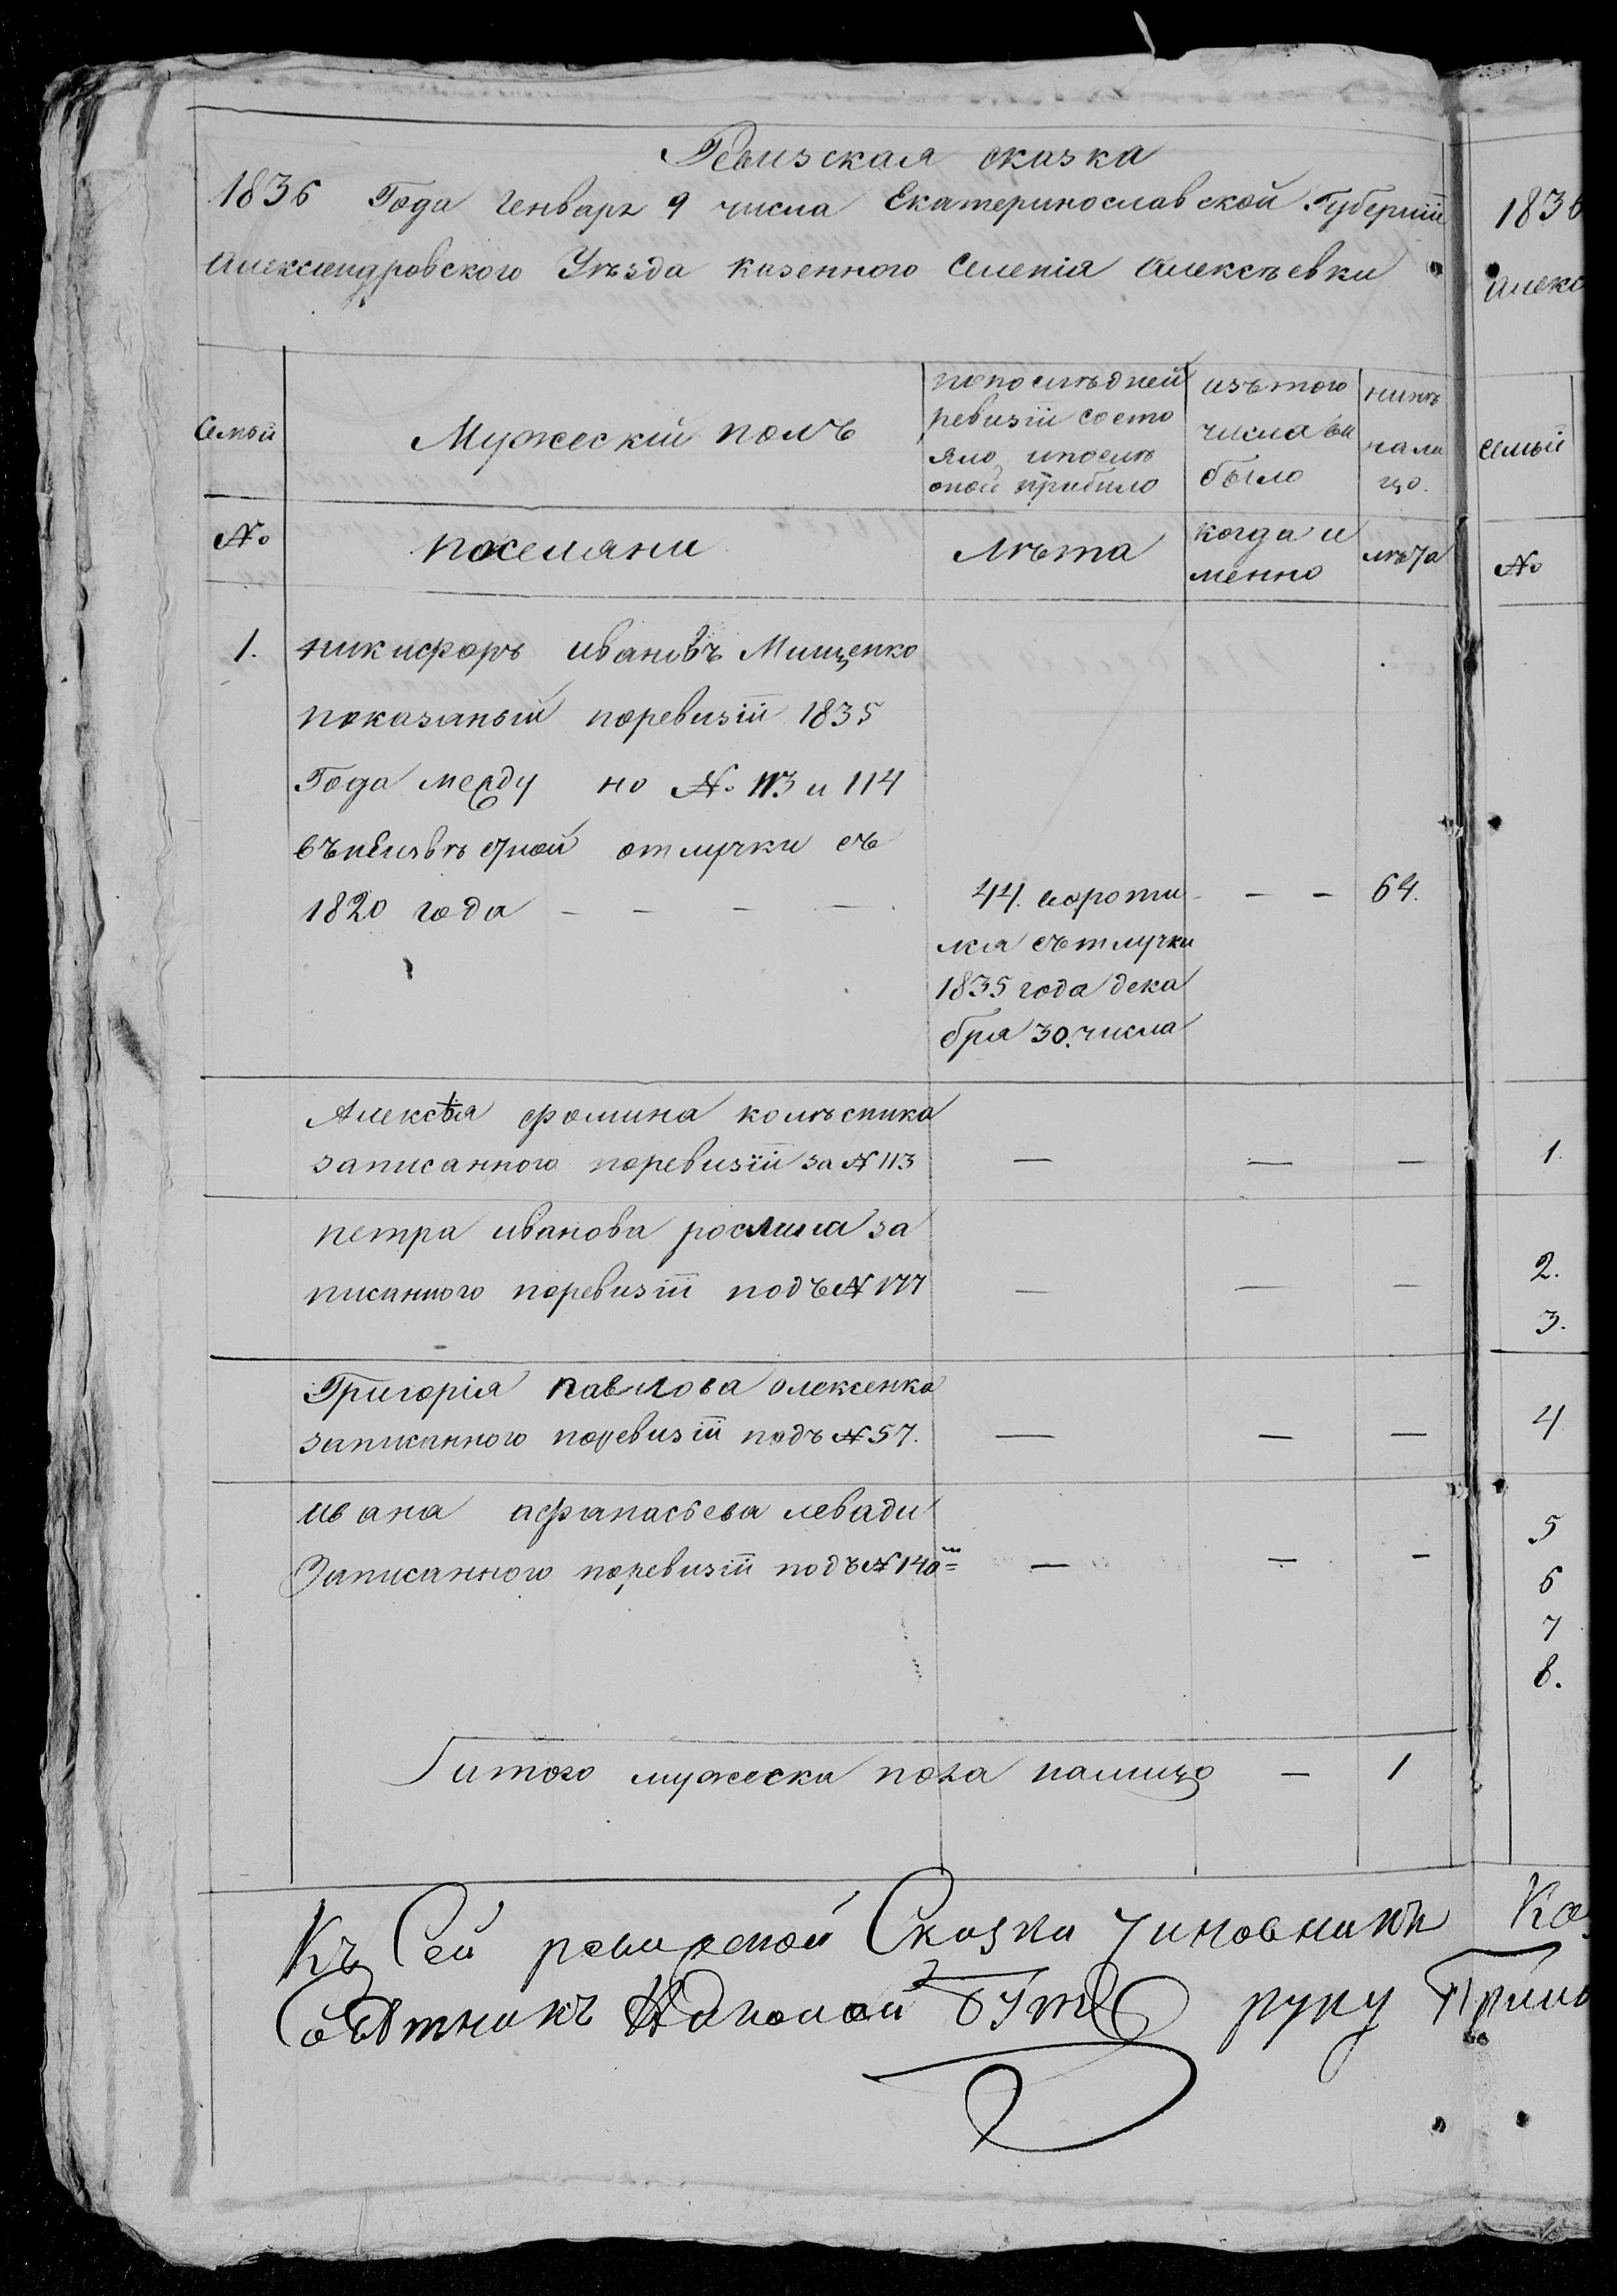 Ревизская сказка
1836 Года Генваря 9 числа Екатеринославской Губернїи
Александровского Уѣзда казенного Селенія Алексѣевки
Семьи
Мужескій полъ
попослѣдней
ревизїи состо
яло, ипослѣ
оной прибило
изътого
числа вы
было
нинѣ
нали
цо.
№
поселяни
лѣта
когда и
менно
лѣта
1.
никифоръ ивановъ Мищенко
показаный поревизїи 1835
Года между но № 113 и 114
въ неизвѣстной отлучки съ
1820 года — — — —
44. вороти
лся сътлучки
1835 года дека
бря 30. числа
— —
64.
Алексѣя фомина колѣсника
записанного поревизїи за № 113 — — —
петра иванова рослина за
писанного поревизїи подъ № 177 — — —
Григорія павлова олексенка
записанного поревизїи подъ № 57. — — —
ивана афанасьева левади
Записанного поревизїи подъ № 140 — — —
итого мужеска пола налицо — 1
Къ Сей ревизской Сказки чиновникъ
Совѣтникъ руку
1836
Алекс
семьи
№
1.
2.
3.
4
5
6
7
8.